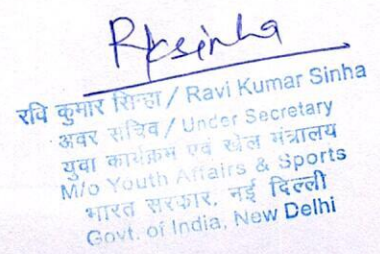 Rksinha
रवि कुमार सिन्हा / Ravi Kumar Sinha
अवर सचिव / Under Secretary
युवा कार्यक्रम एवं खेल मंत्रालय
M/o Youth Affairs & Sports
भारत सरकार, नई दिल्ली
Govt. of India, New Delhi